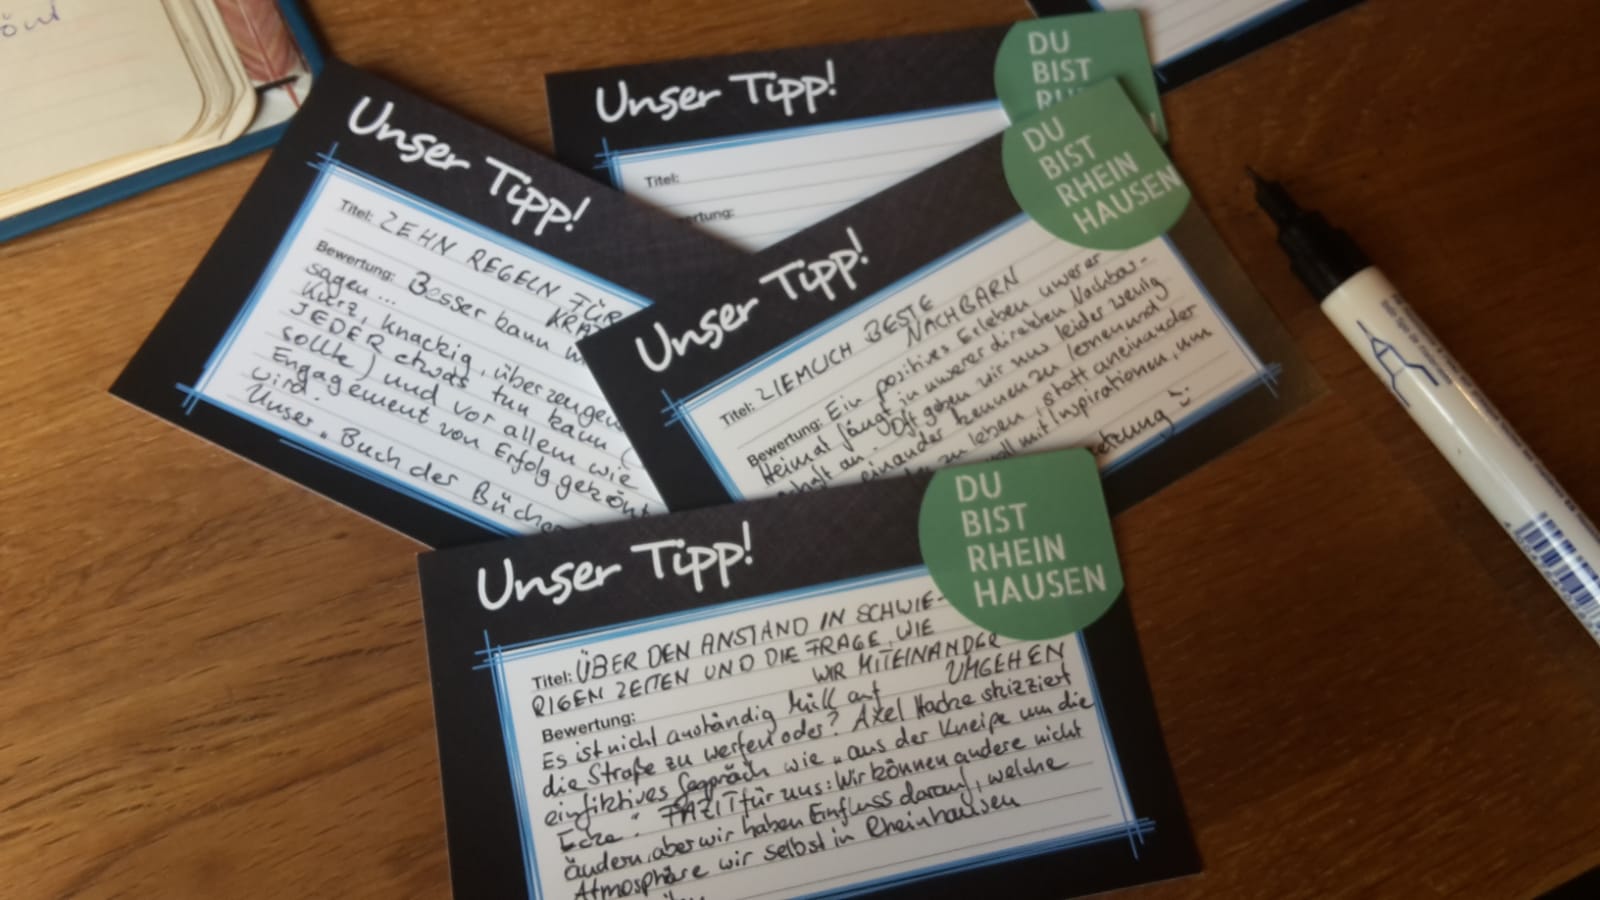 Unser Tipp!
DU
BIST
Titel:
Unser Tipp!
Titel: ZEHN REGELN FÜR
Bewertung: Besser kann
sagen...
Kurz, knackig, überzeugend
JEDER etwas tun kann (
sollte) und vor allem wie
Engagement von Erfolg gekrönt
wird.
Unser „Buch der Bücher
Unser Tipp!
DU
BIST
RHEIN
HAUSEN
Titel: ZIEMLICH BESTE
NACHBARN
Bewertung: Ein positives Erleben unserer
Heimat fängt in unserer direkten Nachbar-
schaft an. Oft geben wir uns leider wenig
einander kennen zu lernen und
zu leben, statt aneinander
voll mit Inspirationen, um
Unser Tipp!
DU
BIST
RHEIN
HAUSEN
Titel: ÜBER DEN ANSTAND IN SCHWIE-
RIGEN ZEITEN UND DIE FRAGE, WIE
WIR MITEINANDER
UMGEHEN
Bewertung:
Es ist nicht anständig Müll auf
die Straße zu werfen oder? Axel Hacke skizziert
ein fiktives Gespräch wie „aus der Kneipe um die
Ecke". FAZIT für uns: Wir können andere nicht
ändern, aber wir haben Einfluss darauf, welche
Atmosphäre wir selbst in Rheinhausen